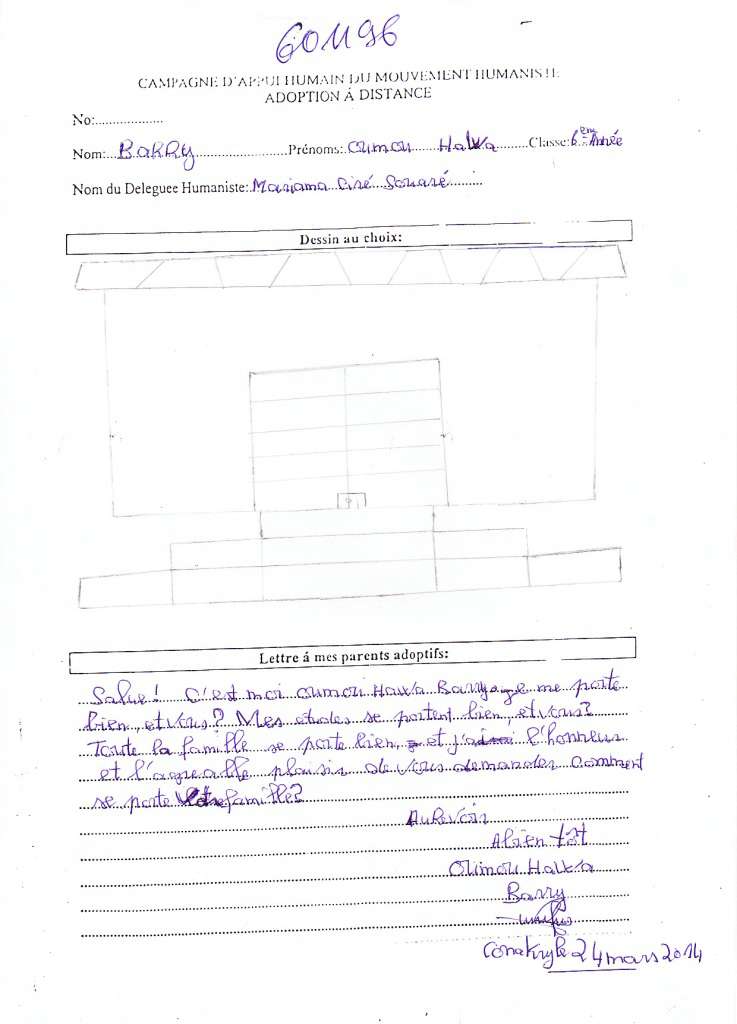 601196
CAMPAGNE D'APPUI HUMAIN DU MOUVEMENT HUMANISTE
ADOPTION Á DISTANCE
No:...................
Nom: BARRY Prénoms: Oumou Hawa Classe: 6ème Année
Nom du Deleguee Humaniste: Mariama Ciré Souaré
Dessin au choix:
Lettre á mes parents adoptifs:
Salue! C'est moi oumou Hawa Barry je me porte
bien, et vous? Mes etudes se portent bien, et vous?
Toute la famille se porte bien, et j'ai l'honneur
et l'agreable plaisir de vous demander Comment
se porte votre famille?
Aurevoir
Abien tôt
Oumou Hawa
Barry
Conakry le 24 mars 2014